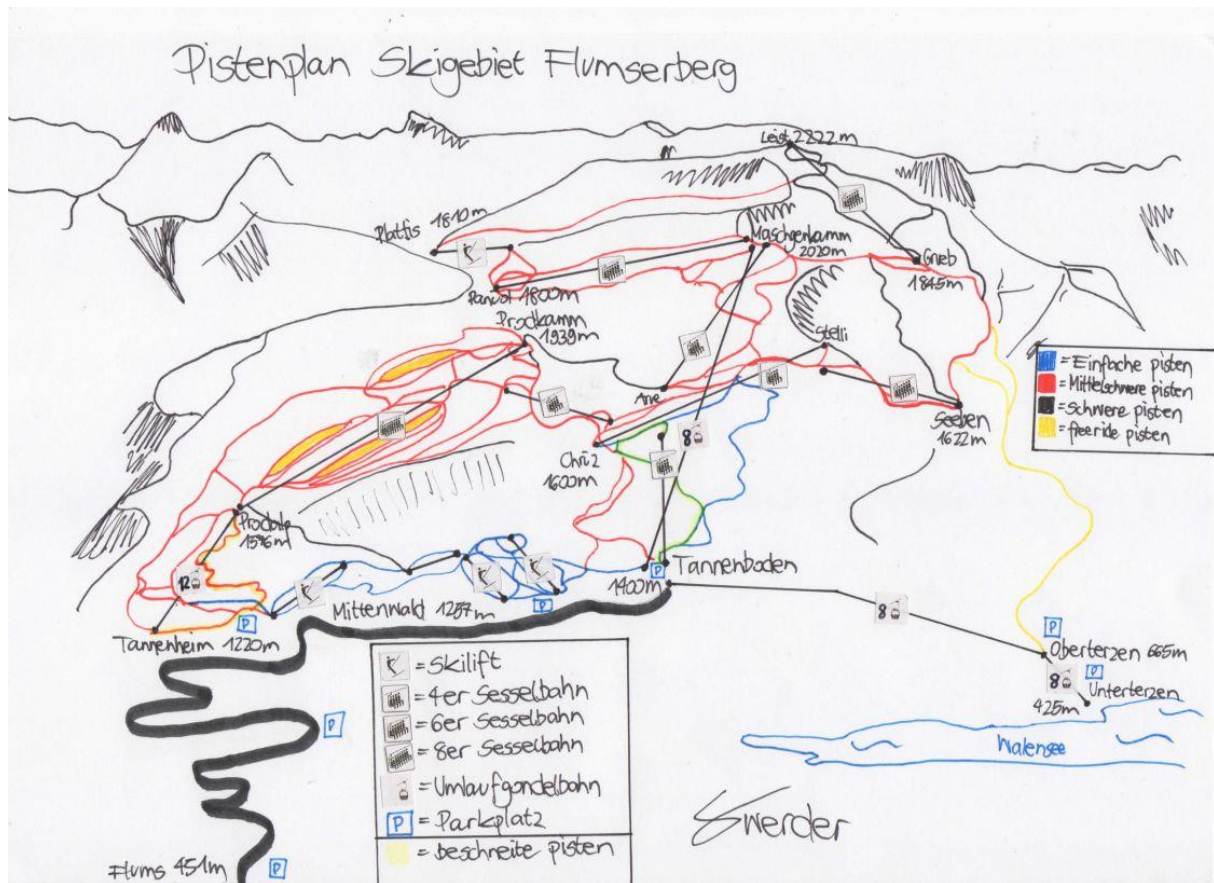 Pistenplan Skigebiet Flumserberg
Leist 2222m
Plattis
1810m
Maschgenkamm
2020m
Grieb
1845m
Panüöl 1800m
Prodkamm
1939m
Stelli
Arve
Seeben
1622m
Chrüz
1600m
8
Prodalp
1576m
12
Mittenwald 1257m
Tannenheim 1220m
P
P
P
1400m
Tannenboden
8
P
Oberterzen 665m
8
P
Unterterzen
425m
Walensee
P
Flums 451m
P
= Einfache pisten
= Mittelschwere pisten
= Schwere pisten
= freeride pisten
= Skilift
= 4er Sesselbahn
= 6er Sesselbahn
= 8er Sesselbahn
= Umlaufgondelbahn
P = Parkplatz
= beschneite pisten